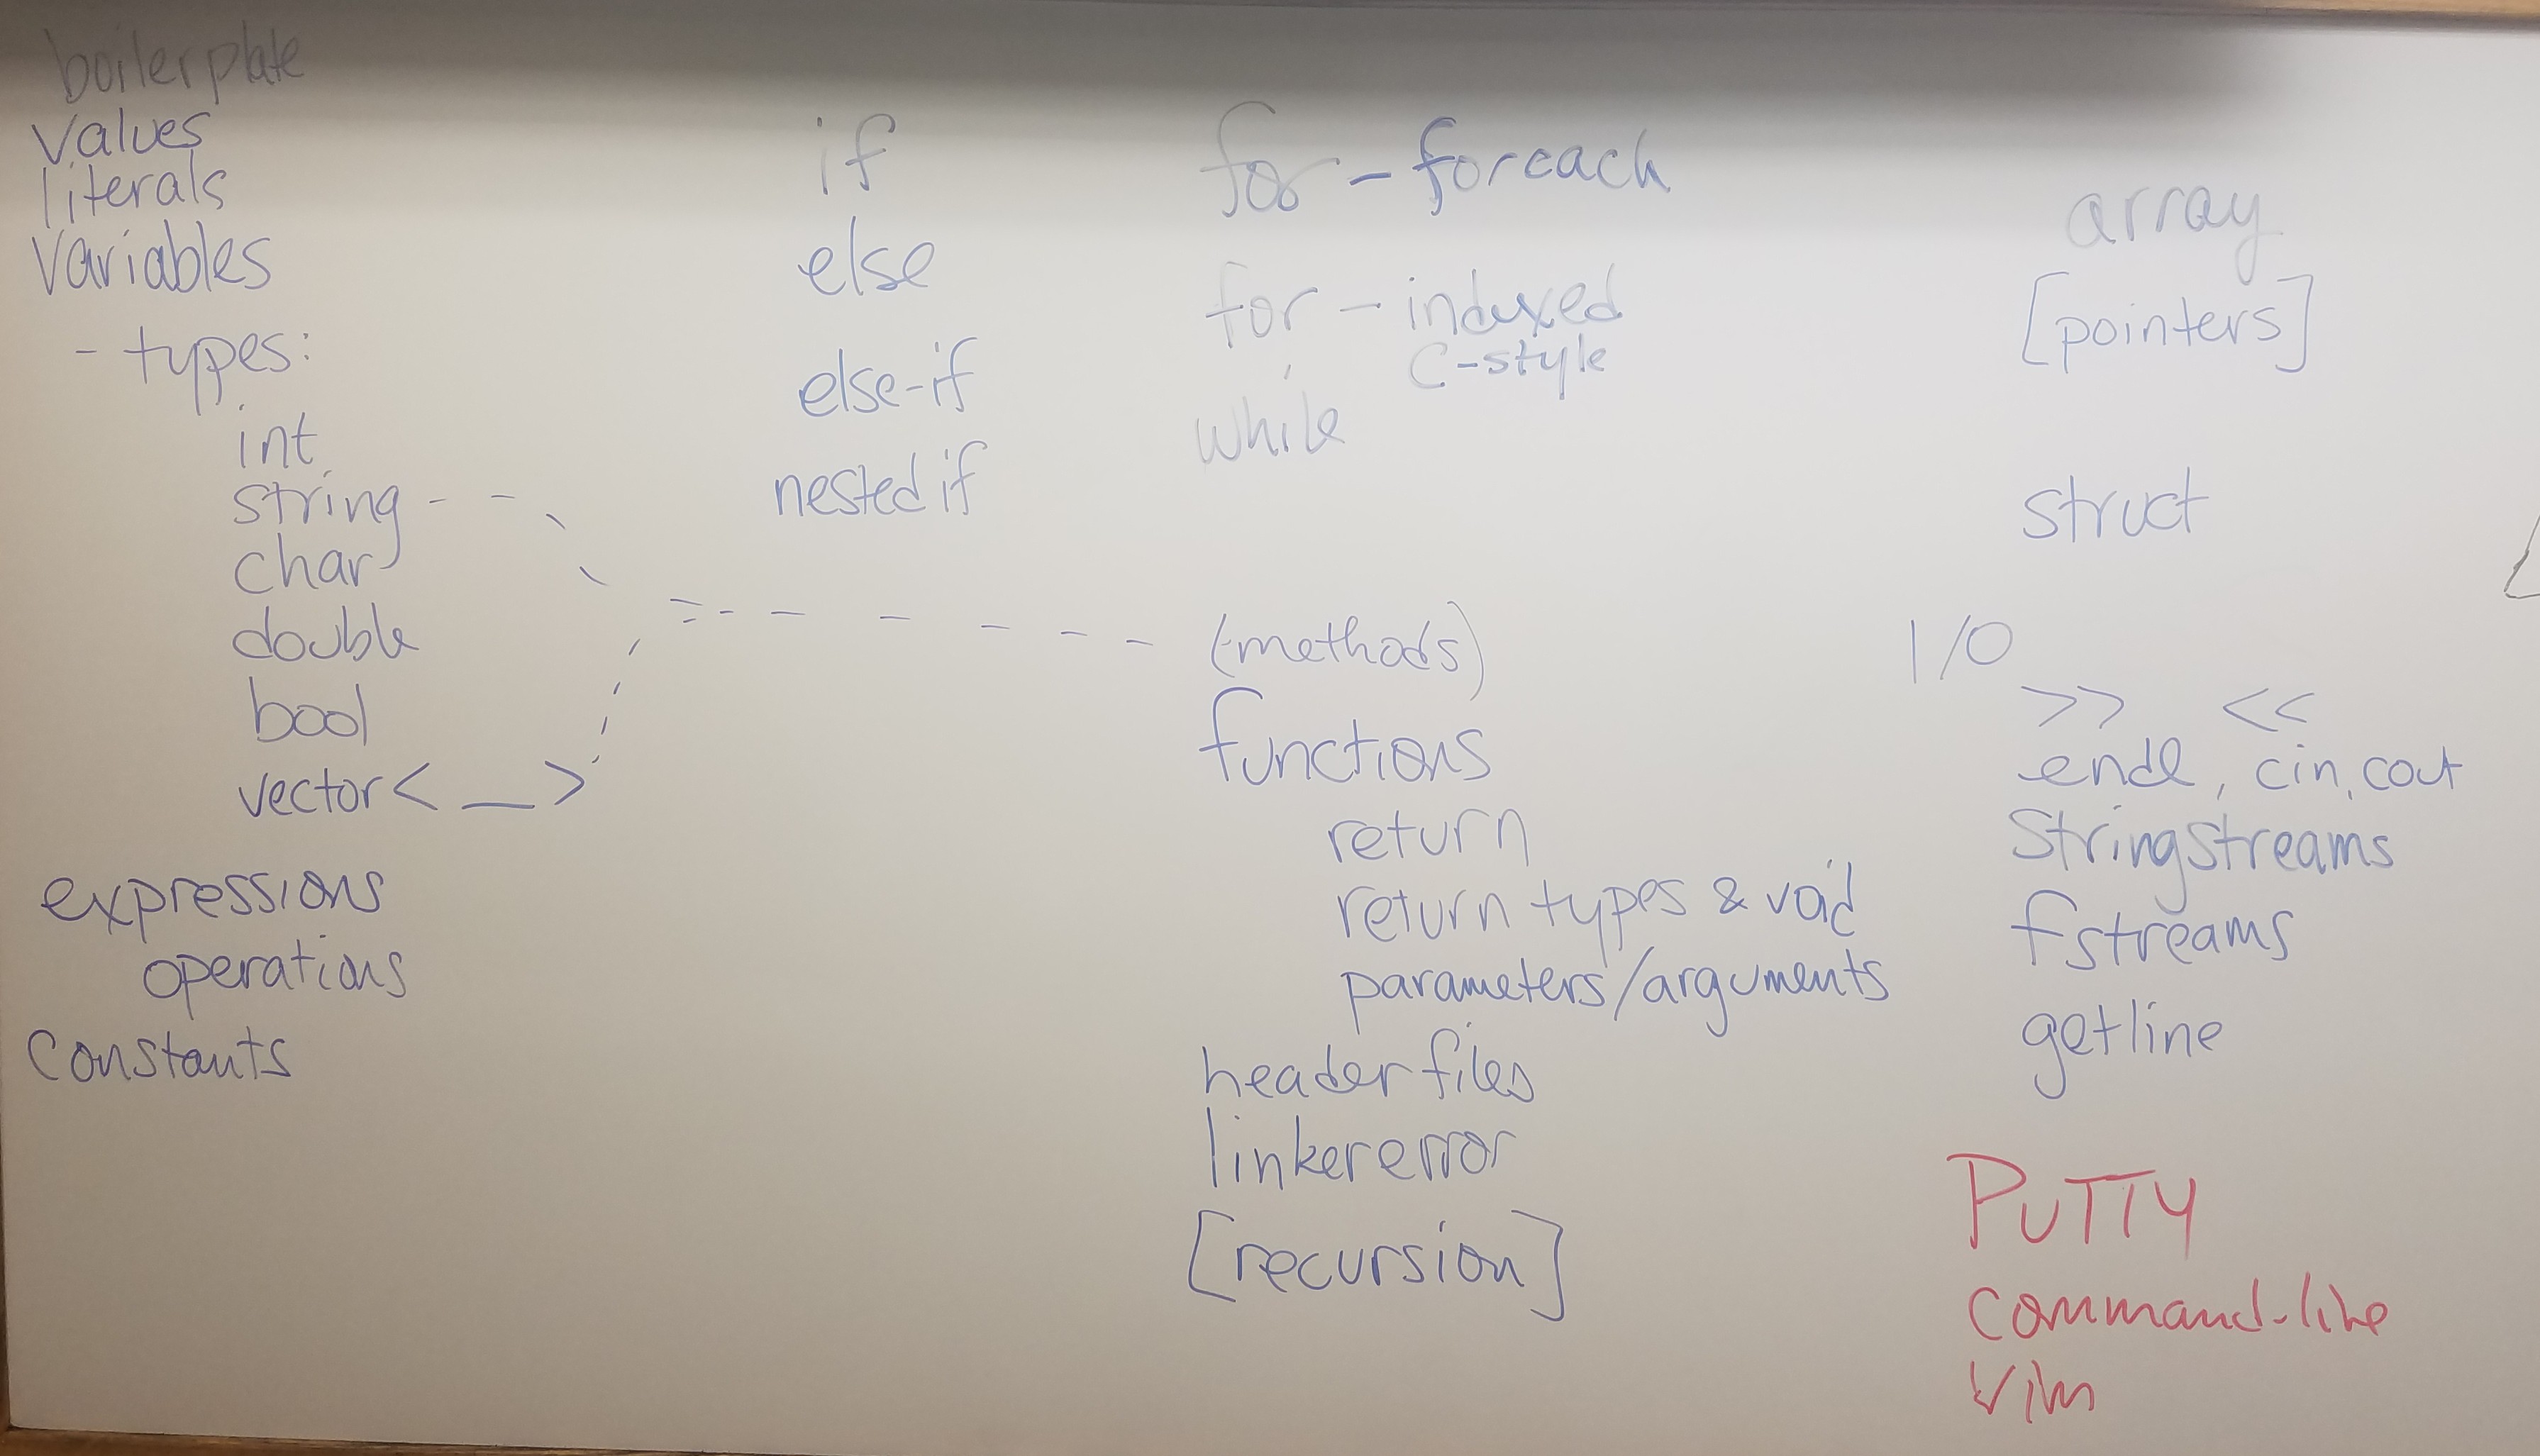 boilerplate
values
literals
variables
- types:
int
string
char
double
bool
vector< __ >
expressions
operations
constants
if
else
else-if
nested if
for - foreach
for - indexed
C-style
while
(-methods)
functions
return
return types & void
parameters/arguments
header files
linker error
[recursion]
array
[pointers]
struct
I/O
>> <<
endl, cin, cout
Stringstreams
fstreams
getline
PuTTY
command-line
Vim